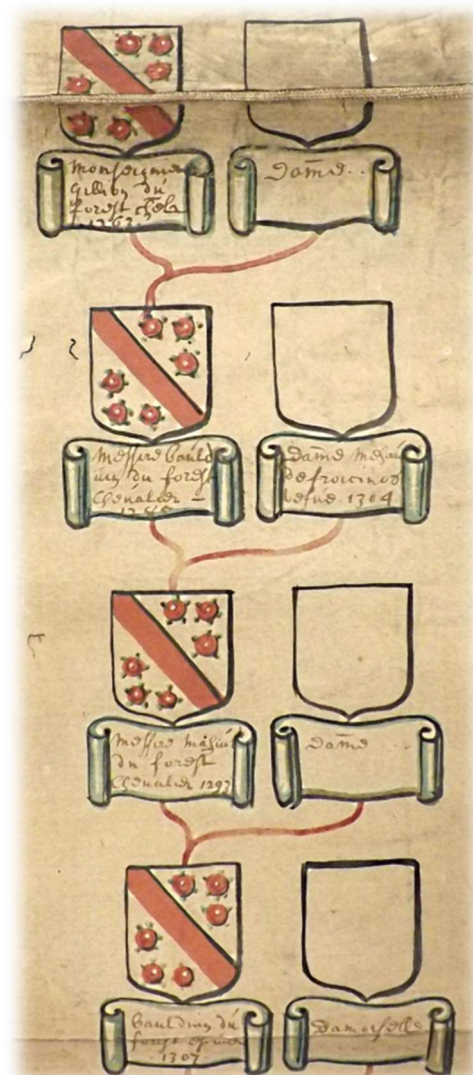 Monseigneur
Gillion du
forest chlr
1263
Dame ..
Messire bauld
uin du forest
Chevalier –
Dame
de froicinos
vefue 1304
Messire
du forest
Chevalier 1297
Dame ...
Bauldwin du
forest
1307
Damoiselle